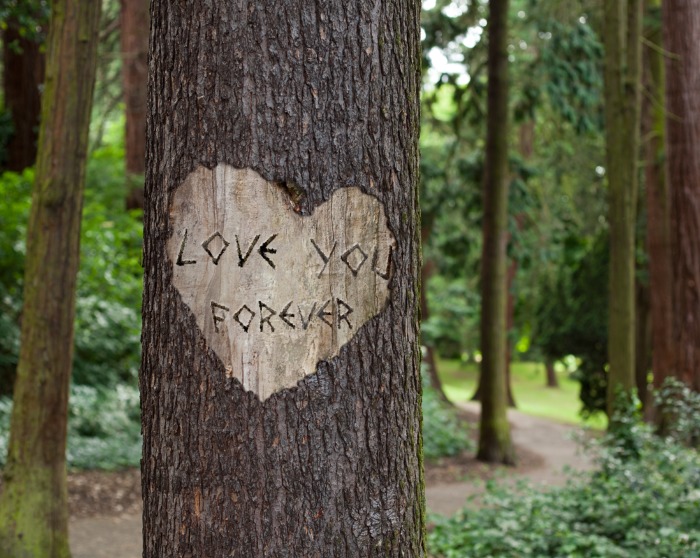 LOVE YOU
FOREVER